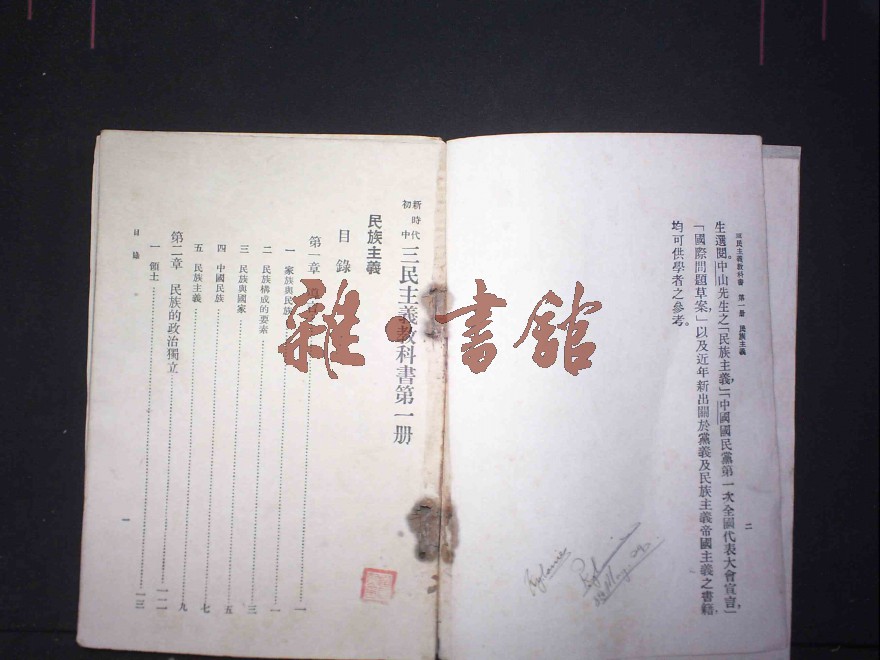 三民主義教科書 第一册 民族主義
二
生選閱中山先生之「民族主義」,「中國國民黨第一次全國代表大會宣言」,
「國際問題草案,」以及近年新出關於黨義及民族主義帝國主義之書籍,
均可供學者之參考。
新時代
初中
三民主義教科書第一册
民族主義
目錄
第一章
一 家族與民族 一
二 民族構成的要素 一
三 民族與國家 三
四 中國民族 五
五 民族主義 七
九
第二章 民族的政治獨立 一二
一 領土 一三
目錄
一
雜·書館